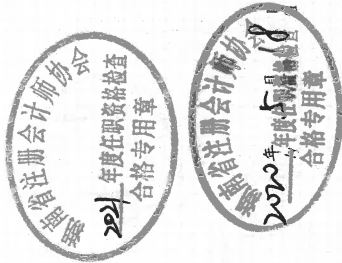 湖南省注册会计师协会
2021 年度任职资格检查
合格专用章
湖南省注册会计师协会
2020年 5月 18
年度任职资格检查
合格专用章